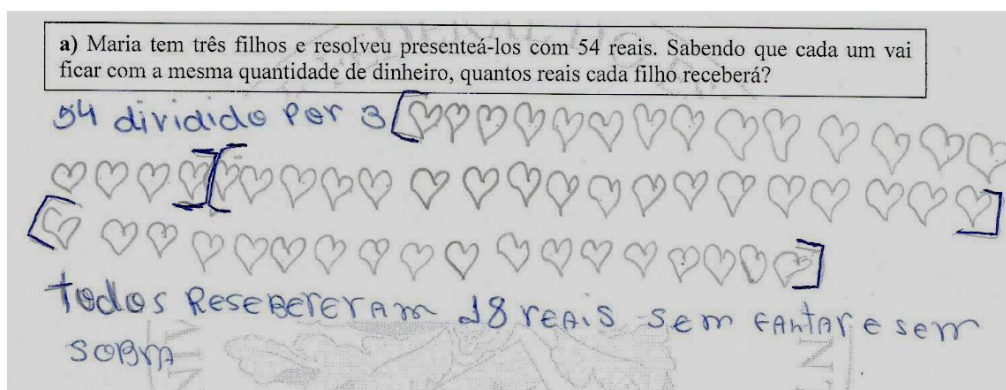 a) Maria tem três filhos e resolveu presenteá-los com 54 reais. Sabendo que cada um vai
ficar com a mesma quantidade de dinheiro, quantos reais cada filho receberá?
54 dividido Por 3
todos ReseBereram 18 reais sem fantar e sem
SOBrA